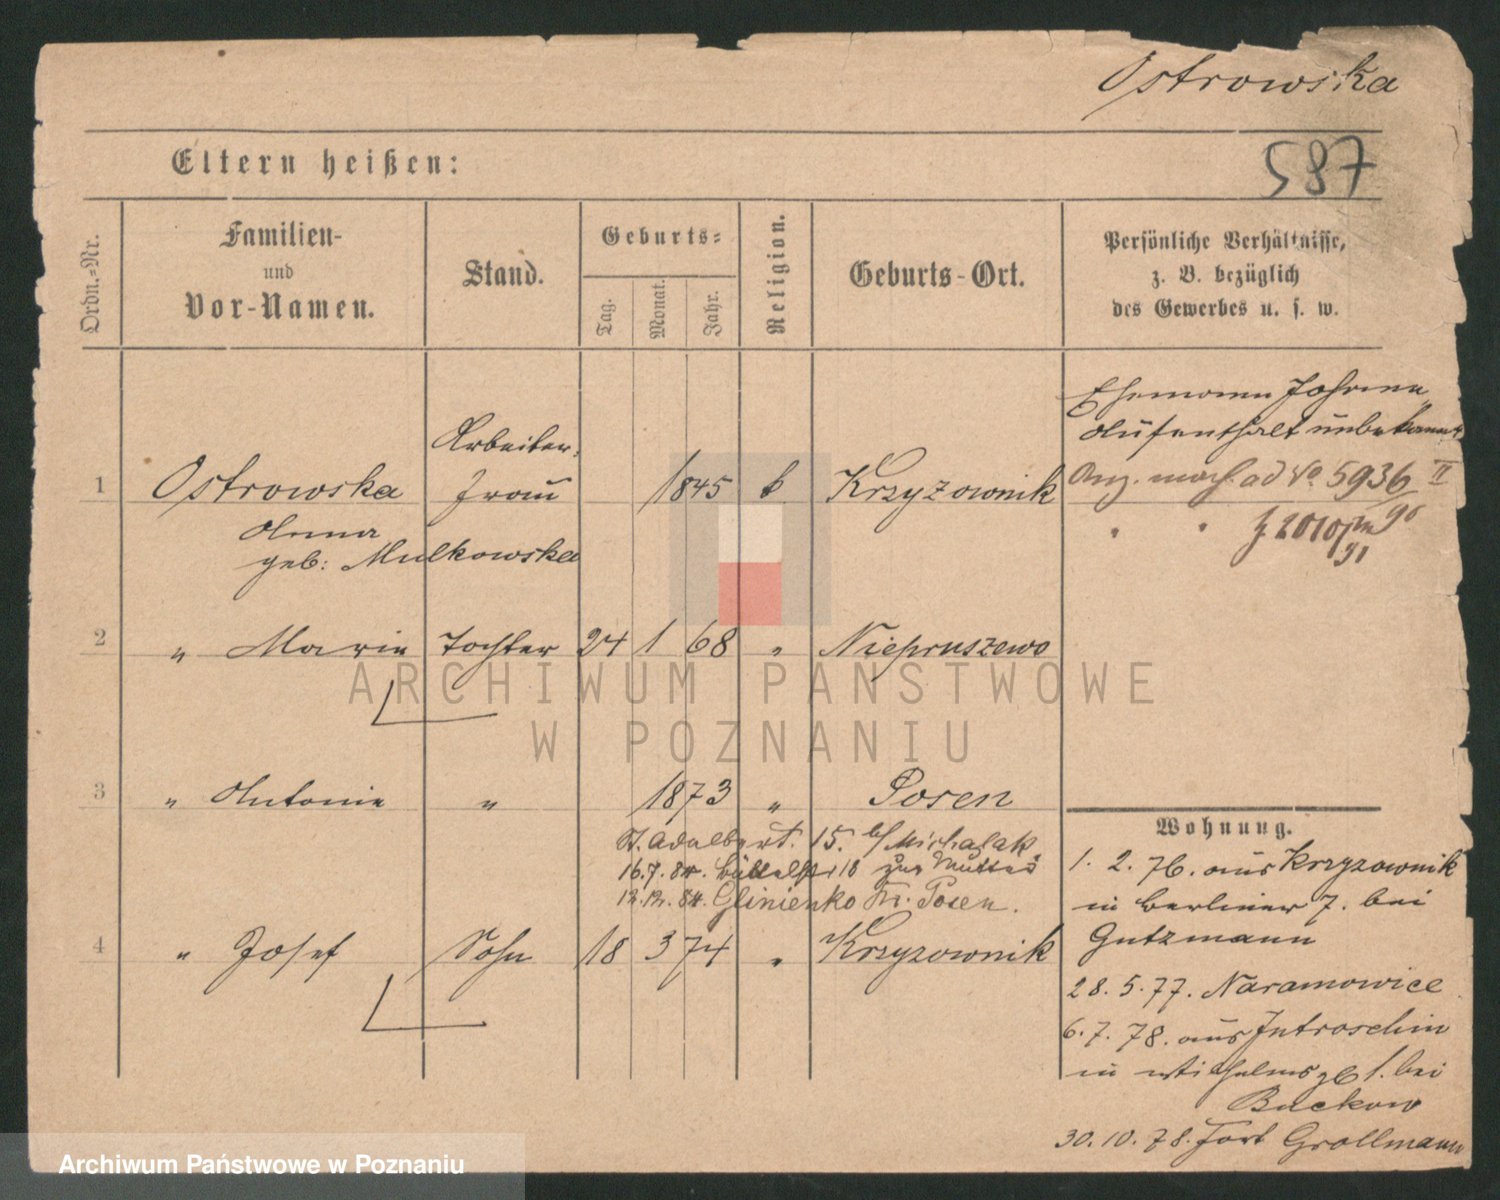 Ostrowska
587
Eltern heißen:
Ordn.-Nr.
Familien-
und
Vor-Namen.
Stand.
Geburts-
Tag.
Monat.
Jahr.
Religion.
Geburts-Ort.
Persönliche Verhältnisse,
z. B. bezüglich
des Gewerbes u. s. w.
Ehemann Johann
Aufenthalt unbekannt
Arbeiter-
1 Ostrowska frau 1845 k Krzyzownik
No 5936 II
Anna
geb: Mulkowska
2 " Marie Tochter 24 1 68 " Niepruszewo
ARCHIWUM PAŃSTWOWE
W POZNANIU
3 " Antonie " 1873 " Posen
St. Adalbert. 15. b/ Michalak
16.7.84. zur Mutter
12.12.84. Glinienko Kr. Posen.
4 " Josef Sohn 18 3 74 " Krzyzownik
Wohnung.
1. 2. 76. aus Krzyzownik
in Berliner 7. bei
Gutzmann
28. 5. 77. Naramowice
6. 7. 78. aus Jutroschin
in Wilhelmspl 1. bei
Buckow
30. 10. 78. Fort Grollmann
Archiwum Państwowe w Poznaniu